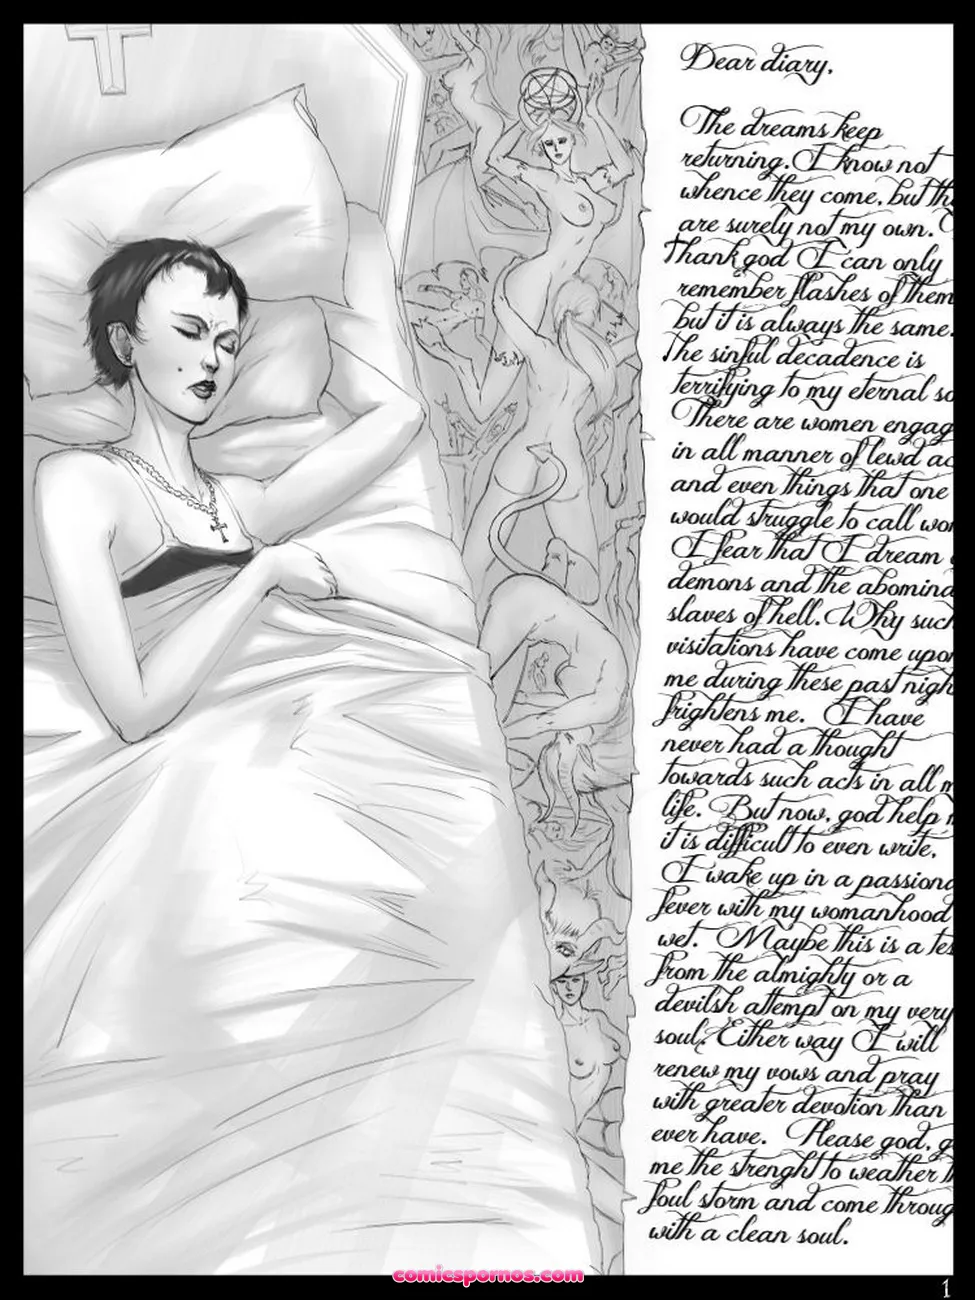 Dear diary,
The dreams keep
returning. I know not
whence they come, but
are surely not my own.
Thank god I can only
remember flashes of them
but it is always the same.
The sinful decadence is
terrifying to my eternal
There are women
in all manner of lewd
and even things that one
would struggle to call
I fear that I dream
demons and the
slaves of hell. Why such
visitations have come upon
me during these past
frightens me. I have
never had a thought
towards such acts in all
life. But now, god help
it is difficult to even write,
I wake up in a
fever with my womanhood
wet. Maybe this is a
from the almighty or a
devilsh attempt on my very
soul. Either way I will
renew my vows and pray
with greater devotion than
ever have. Please god,
me the strenght to weather
foul storm and come
with a clean soul.
comicspornos.com
1